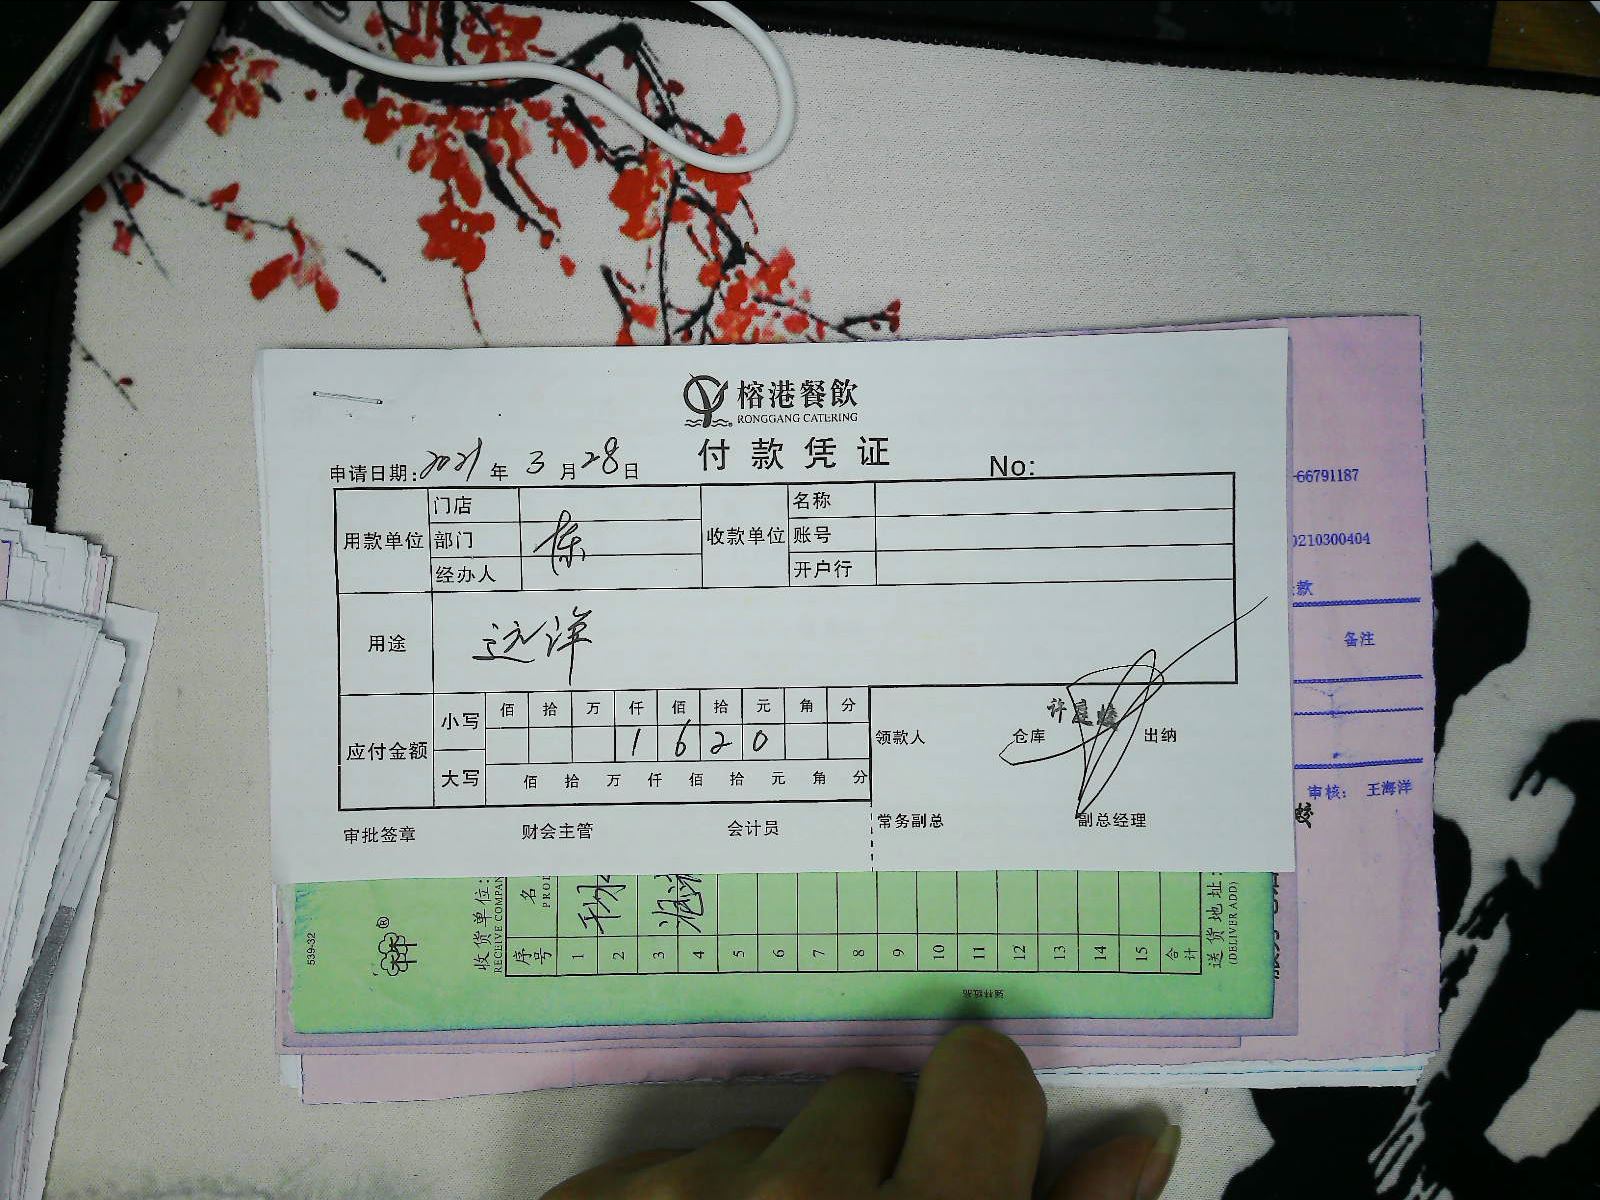 榕港餐飲
RONGGANG CATERING
付款凭证
申请日期:2021年3月28日 No:
用款单位 门店 收款单位 名称
部门 陈 账号
经办人 开户行
用途 远洋
应付金额 小写 佰 拾 万 仟 佰 拾 元 角 分
1 6 2 0
大写 佰 拾 万 仟 佰 拾 元 角 分
领款人 仓库 出纳
审批签章 财会主管 会计员 常务副总 副总经理
-66791187
0210300404
款
备注
审核: 王海洋
539-32
收货单位:
RECEIVE COMPAN
序号 1 2 3 4 5 6 7 8 9 10 11 12 13 14 15 合计
名
PROD
送货地址:
(DELIVER ADD)